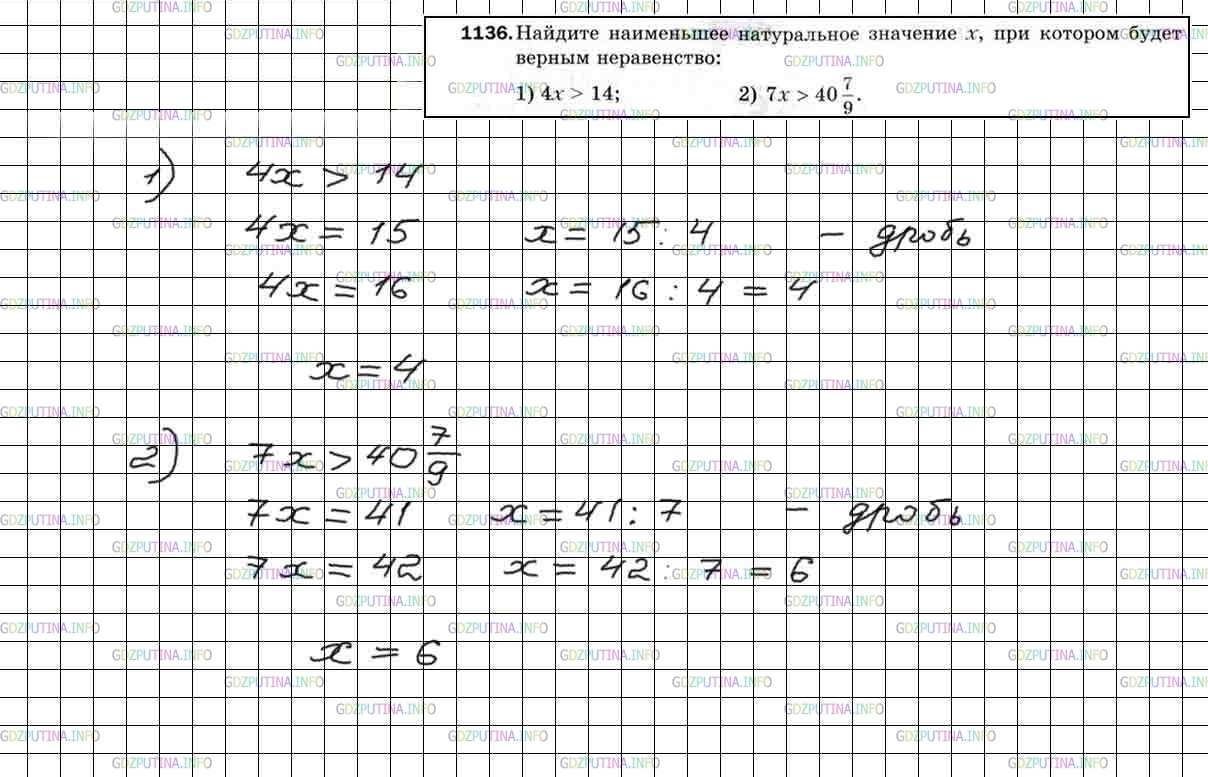 1136. Найдите наименьшее натуральное значение x, при котором будет
верным неравенство:
1) 4x > 14; 2) 7x > 40 7/9.
1) 4x > 14
4x = 15 x = 15 : 4 - дробь
4x = 16 x = 16 : 4 = 4
x = 4
2) 7x > 40 7/9
7x = 41 x = 41 : 7 - дробь
7x = 42 x = 42 : 7 = 6
x = 6
GDZPUTINA.INFO